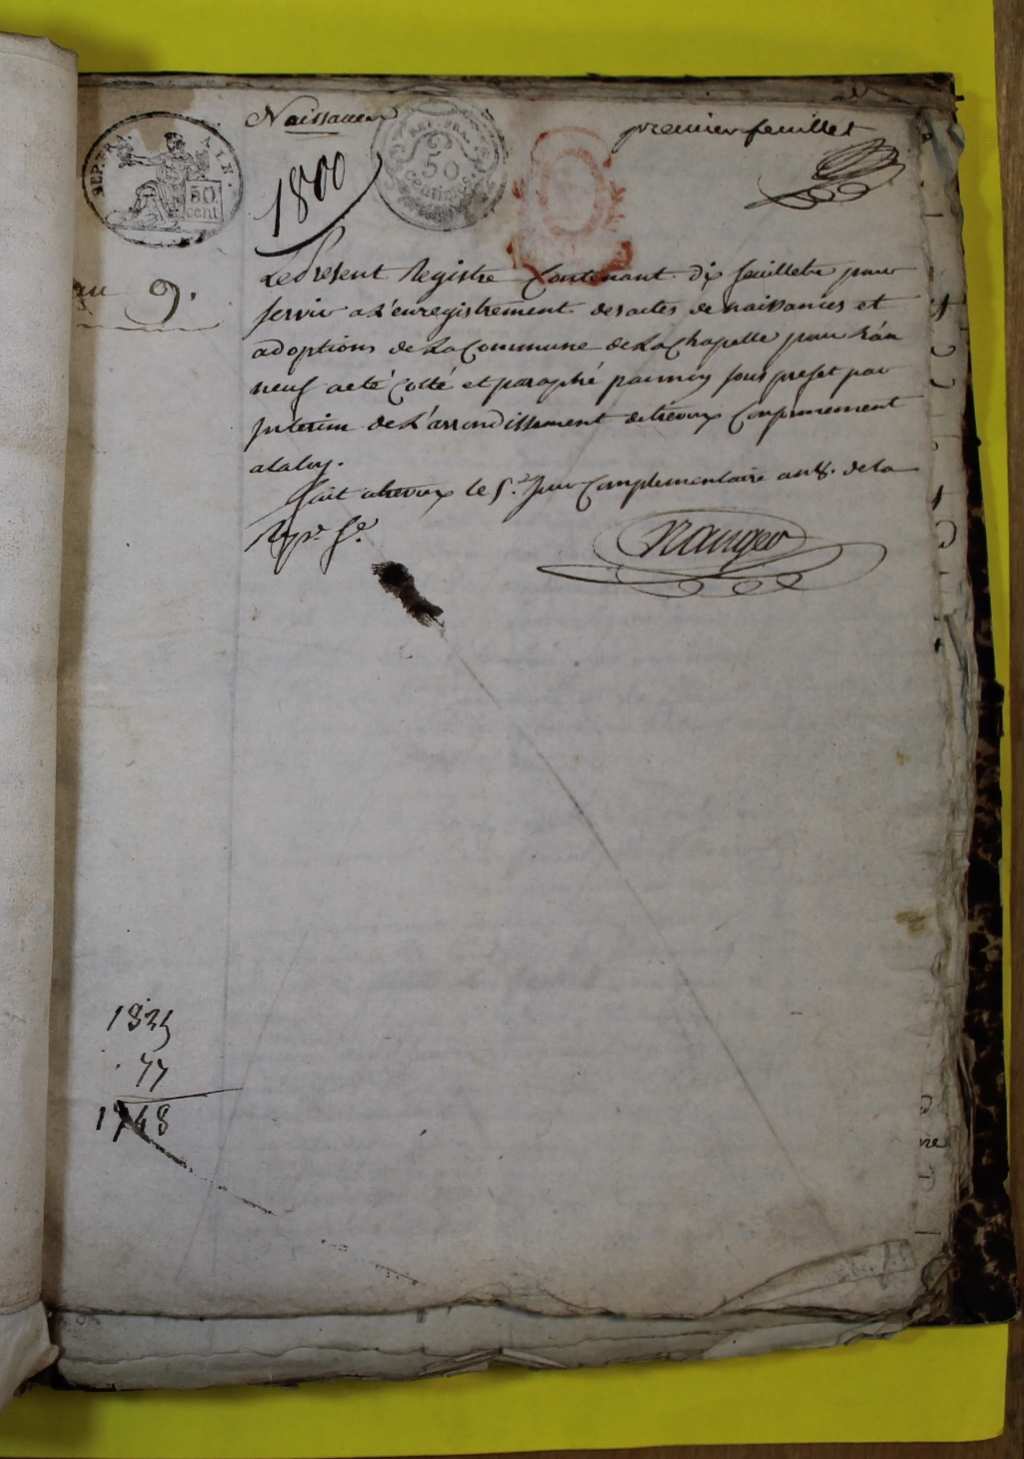 Naissances
premier feuillet
REP. FRA
50
cent
50
centimes
1800
an 9.
Le Present Registre Contenant dix feuillets pour
servir a L'enregistrement des actes de naissances et
adoptions de La Commune de La Chapelle pour L'an
neuf a eté Cotté et paraphé par moy sous prefet par
Interim de L'arrondissement de trevoux Conformement
a la loy.
fait a trevoux le 5.e Jour Complementaire an 8. de la
Rep.e f.e
1825
77
1748